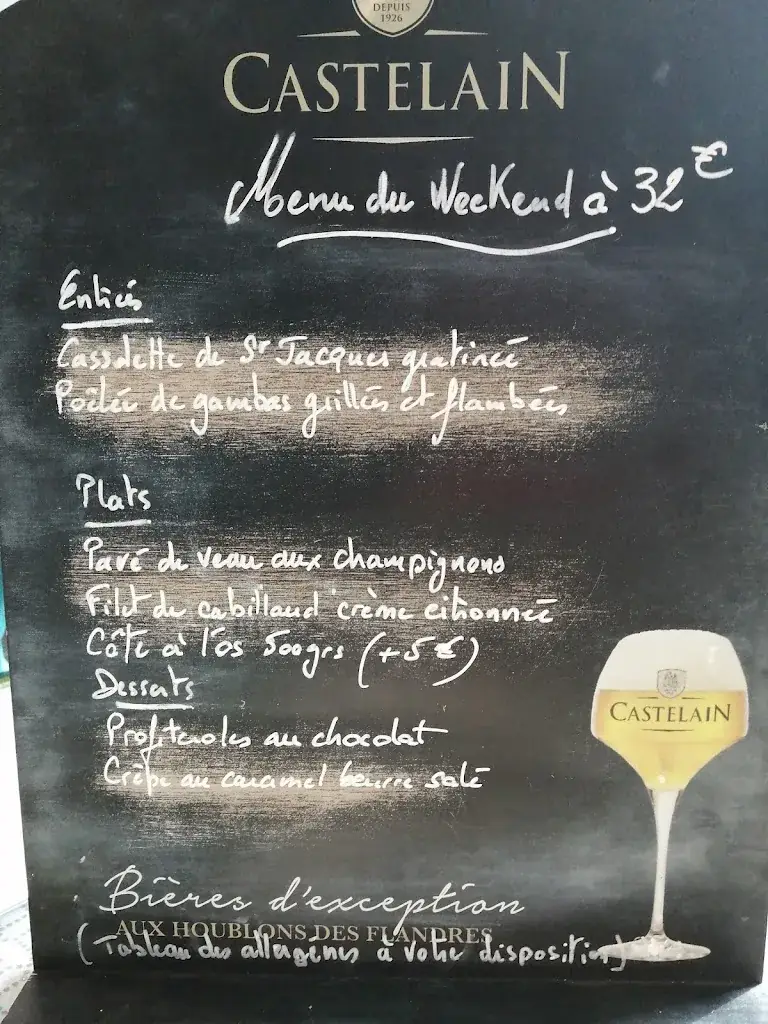 DEPUIS
1926
CASTELAIN
Menu du Weekend à 32€
Entrées
Cassolette de St Jacques gratinée
Poêlée de gambas grillées et flambées
Plats
Pavé de veau aux champignons
Filet de cabillaud crème citronnée
Côte à l'os 500grs (+5€)
Desserts
Profiteroles au chocolat
Crêpe au caramel beurre salé
CASTELAIN
Bières d'exception
AUX HOUBLONS DES FLANDRES
(Tableau des allergènes à votre disposition)